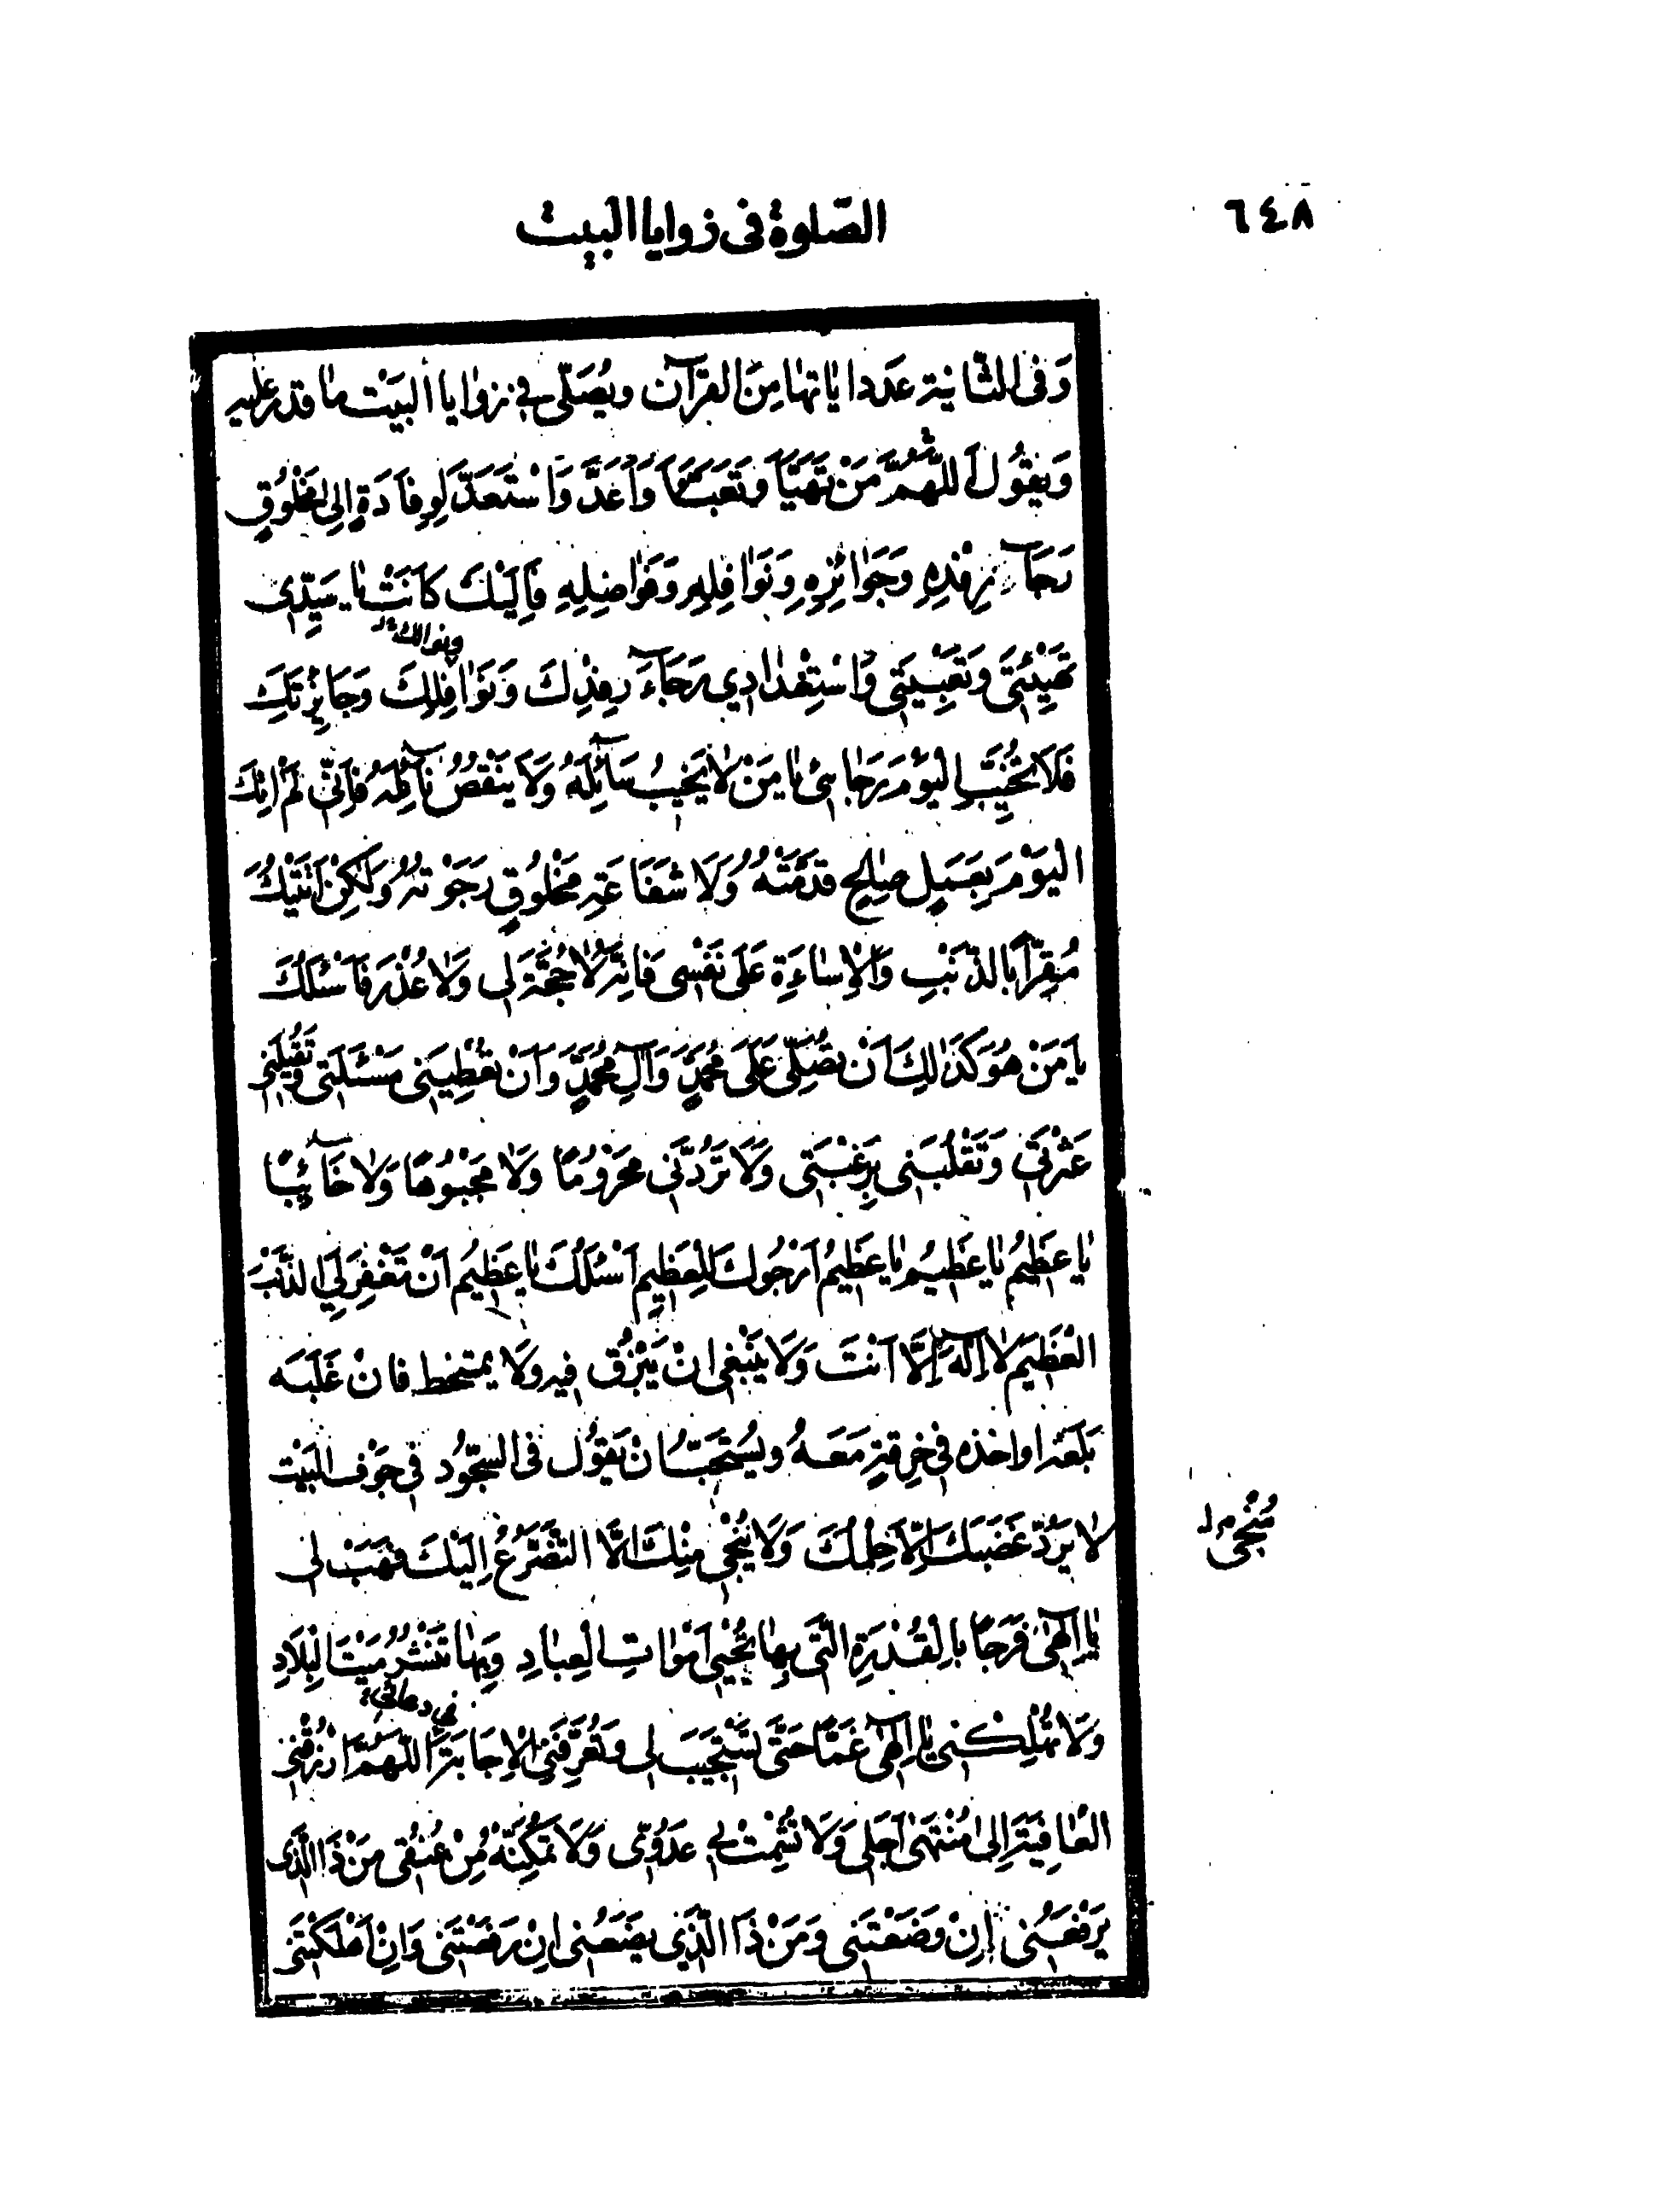 ٦٤٨
الصّلوة فى زوايا البيت
وَفى الثّانية عَدَد اٰياتها مِنَ القرْآن ويُصَلّى فى زوٰايا البَيَت ماٰ قدر عليه
وَيقوُل اَللّهُمَّ مَنْ تَهَيَّاَ وَتَعَبَّاَ وَاَعَدَّ وَاسْتَعَدَّ لِوِفادَةٍ اِلى مَخْلوُقٍ
رَجَآءَ رِفْدِهِ وَجَوٰائِزِهِ وَنَوٰافِلِهِ وَفَوٰاضِلِهِ فَاِلَيْكَ كانَتْ يٰا سَيِّدى
تَهْيِئَتى وَتَعْبِيَتى وَاسْتِعْدٰادِي رَجَآءَ رِفْدِكَ وَنَوٰافِلِكَ وَجَائِزَتِكَ
ونوالك
فَلاَ تُخَيِّبِ اليَوْمَ رَجٰائى يٰا مَنْ لاٰ يَخيبُ سَآئِلُهُ وَلاَ يَنْقُصُ نآئِلُهُ فَاِنّى لَمْ اٰتِكَ
اليَوْمَ بِعَمَلٍ صٰالِحٍ قَدَّمْتُهُ وَلاَ شَفَاعَةِ مَخْلوُقٍ رَجَوْتهُ وَلكِنْ اَتَيْتُكَ
مُقِرّاً بالذَّنْبِ وَالاِْسٰاءَةِ عَلى نَفْسى فَانِّه لاٰ حُجَّةَ لى وَلاٰ عُذْرَ فَاَسْئَلُكَ
يٰا مَنْ هُوَ كَذٰلِكَ اَنْ تُصَلِّىَ عَلَى مُحَمَّدٍ وَآلِ مُحَمَّدٍ وَاَنْ تُعْطِيَنى مَسْئَلَتى وَتُقيلَنى
عَثْرَتى وَتَقْلِبَنى بِرَغْبَتى وَلاَ تَرُدَّنى مَحْرُومًا وَلاٰ مَجْبُوهًا وَلاٰ خٰآئِبًا
يٰا عَظيٖمُ يٰا عَظيمُ يٰا عَظيمُ اَرْجُوكَ لِلْعَظيمِ اَسْئَلُكَ يٰا عَظيمُ اَنْ تَغْفِرَ لِيَ الذَّنْبَ
العَظيمَ لاٰ اِلٰهَ اِلاَّ اَنْتَ وَلاَ يَنْبَغى انْ يَبْزُق فيه وَلاَ يمتخط فانْ غَلَبَه
بَلَعَه او اخذه فى خِرقةٍ مَعَهُ ويُسْتَحَبّ انْ يَقوُل فى السجُود فى جَوْف البَيْت
لاٰ يَرُدّ غَضَبَكَ اِلاّ حِلْمُكَ وَلاَ يُنْجى مِنْكَ اِلاَّ التَّضَرُّعُ اِلَيْكَ فَهَبْ لى
مُنْجى م
يٰا اِلٰهى فَرَجًا بِالْقُدْرَةِ الَّتى بِهٰا تُحْيى اَمْوٰاتَ الْعِبادِ وَبِهٰا تَنْشُرُ مَيْتَ الْبِلاَدِ
وَلاَ تُهْلِكْنى يٰا اِلٰهى غَمًّا حَتَّى تَسْتَجيبَ لى وَتُعَرِّفَنِى الاِْجَابَةَ اَللّهُمَّ ارْزُقْنى
فى دعائى
العٰافِيَةَ اِلى مُنْتَهىٰ اَجَلى وَلاَ تُشْمِتْ بى عَدُوّى وَلاَ تُمَكِّنْهُ مِنْ عُنُقى مَنْ ذَا الَّذى
يَرْفَعُنى اِنْ وَضَعْتَنى وَمَنْ ذَا الَّذى يَضَعُنى اِنْ رَفَعْتَنى وَاِنْ اَهْلَكْتَنى